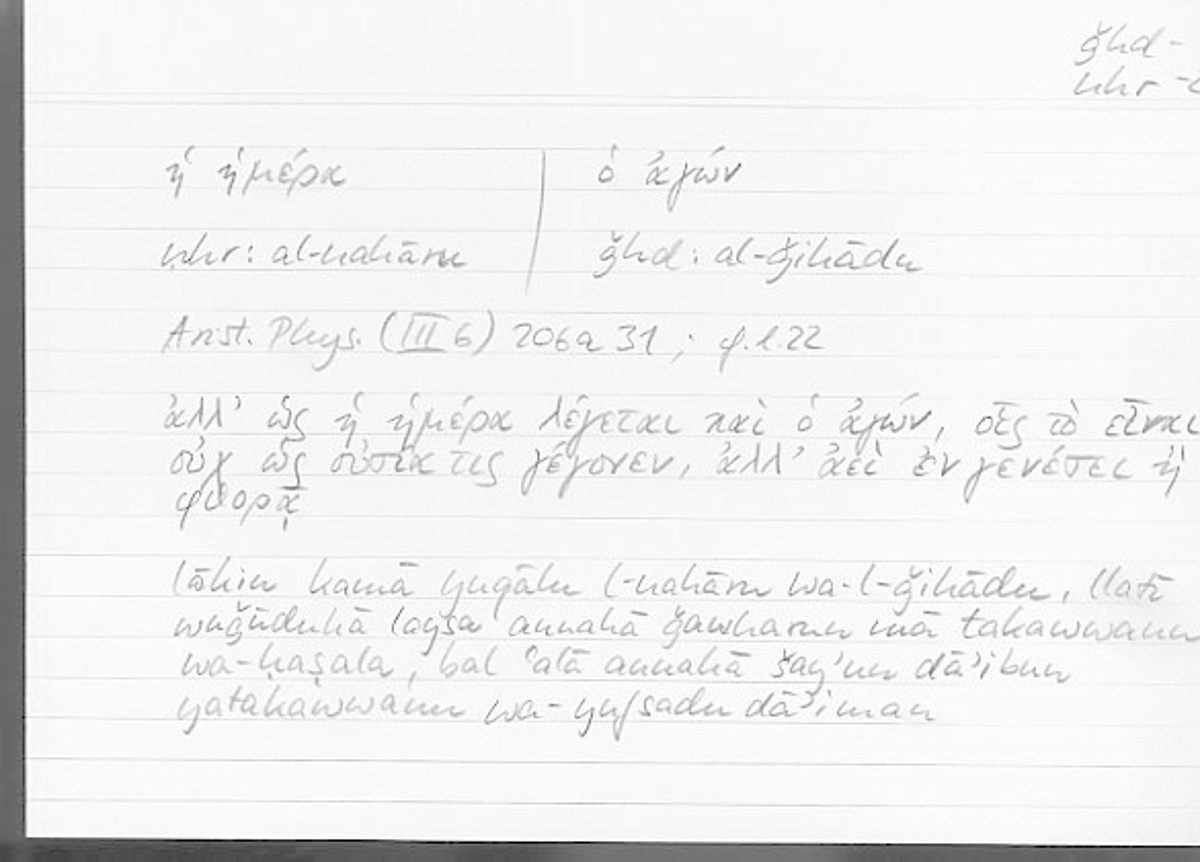 ǧhd-
nhr -
ἡ ἡμέρα | ὁ ἀγών
nhr: al-nahāru | ǧhd: al-ǧihādu
Arist. Phys. (III 6) 206a 31; φ.l.22
ἀλλ' ὡς ἡ ἡμέρα λέγεται καὶ ὁ ἀγών, οἷς τὸ εἶναι
οὐχ ὡς οὐσία τις γέγονεν, ἀλλ' ἀεὶ ἐν γενέσει ἢ
φθορᾷ
lākin kamā yuqālu l-nahāru wa-l-ǧihādu, llatī
wuǧūduhā laysa annahā ǧawharun mā takawwana
wa-ḥaṣala, bal ʿalā annahā šayʾun dāʾibun
yatakawwanu wa-yufsadu dāʾiman